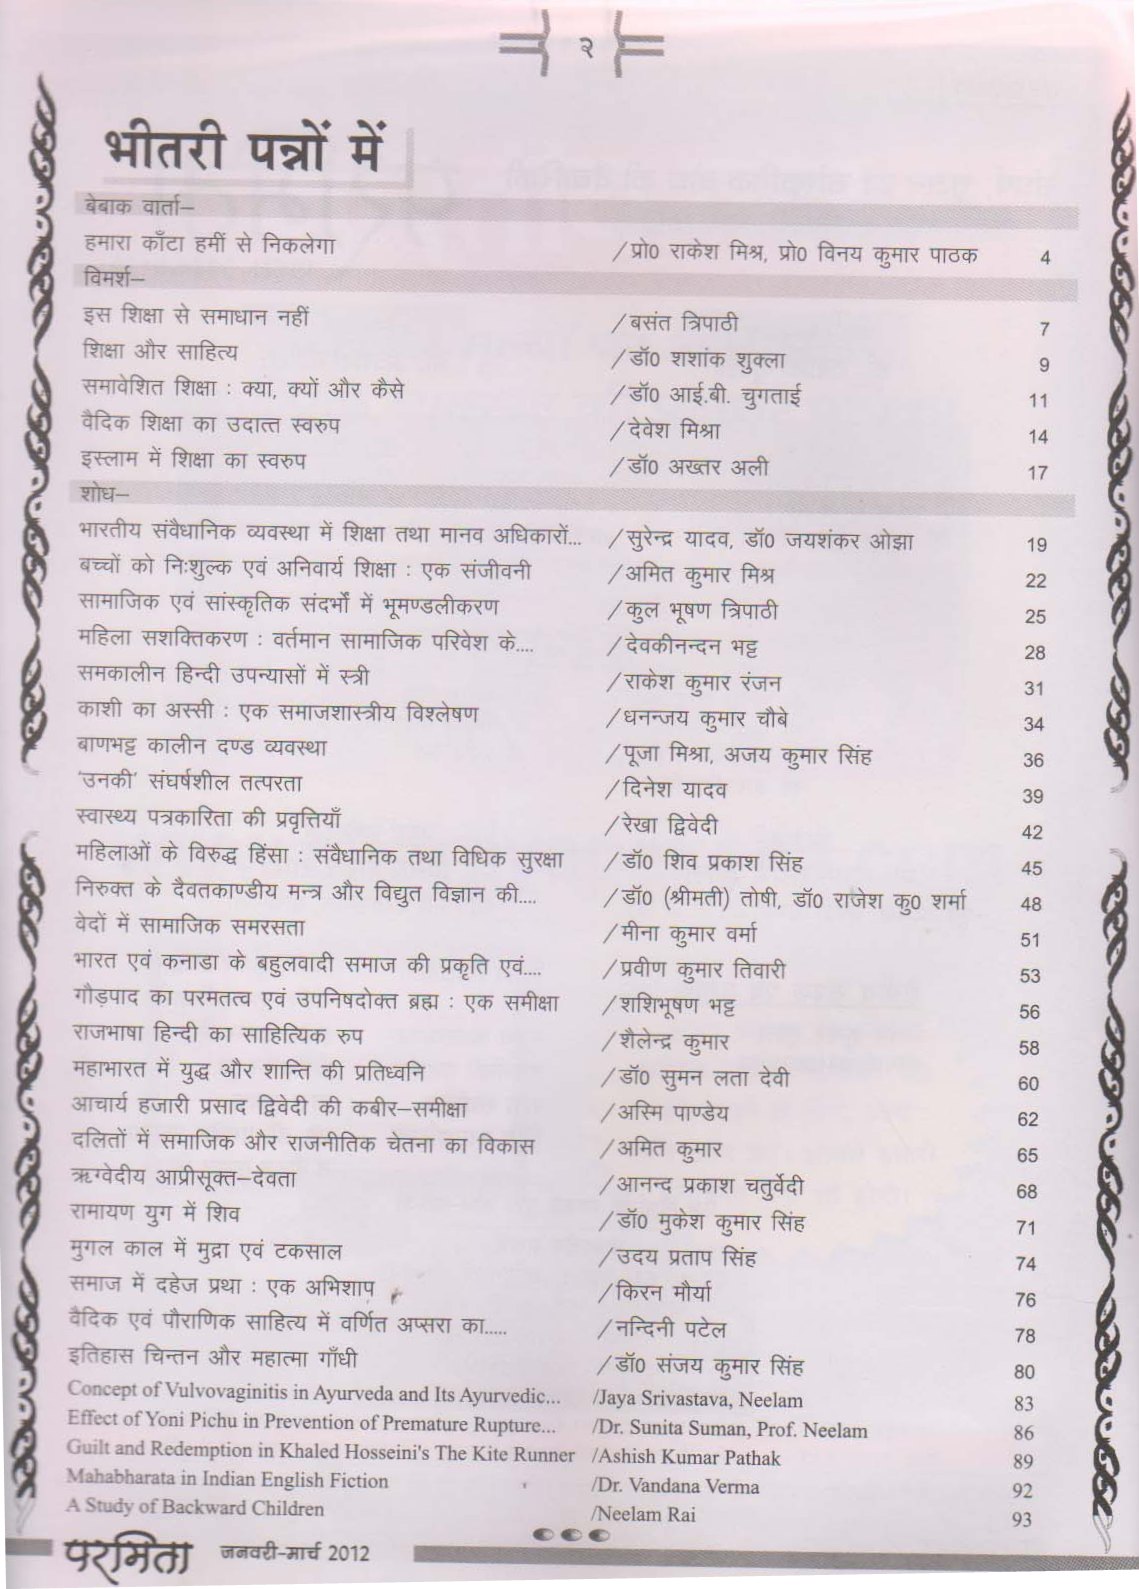 २
भीतरी पन्नों में
बेबाक वार्ता–
हमारा काँटा हमीं से निकलेगा /प्रो0 राकेश मिश्र, प्रो0 विनय कुमार पाठक 4
विमर्श–
इस शिक्षा से समाधान नहीं /बसंत त्रिपाठी 7
शिक्षा और साहित्य /डॉ0 शशांक शुक्ला 9
समावेशित शिक्षा : क्या, क्यों और कैसे /डॉ0 आई.बी. चुगताई 11
वैदिक शिक्षा का उदात्त स्वरुप /देवेश मिश्रा 14
इस्लाम में शिक्षा का स्वरुप /डॉ0 अख्तर अली 17
शोध–
भारतीय संवैधानिक व्यवस्था में शिक्षा तथा मानव अधिकारों... /सुरेन्द्र यादव, डॉ0 जयशंकर ओझा 19
बच्चों को निःशुल्क एवं अनिवार्य शिक्षा : एक संजीवनी /अमित कुमार मिश्र 22
सामाजिक एवं सांस्कृतिक संदर्भों में भूमण्डलीकरण /कुल भूषण त्रिपाठी 25
महिला सशक्तिकरण : वर्तमान सामाजिक परिवेश के.... /देवकीनन्दन भट्ट 28
समकालीन हिन्दी उपन्यासों में स्त्री /राकेश कुमार रंजन 31
काशी का अस्सी : एक समाजशास्त्रीय विश्लेषण /धनन्जय कुमार चौबे 34
बाणभट्ट कालीन दण्ड व्यवस्था /पूजा मिश्रा, अजय कुमार सिंह 36
'उनकी' संघर्षशील तत्परता /दिनेश यादव 39
स्वास्थ्य पत्रकारिता की प्रवृत्तियाँ /रेखा द्विवेदी 42
महिलाओं के विरुद्ध हिंसा : संवैधानिक तथा विधिक सुरक्षा /डॉ0 शिव प्रकाश सिंह 45
निरुक्त के दैवतकाण्डीय मन्त्र और विद्युत विज्ञान की.... /डॉ0 (श्रीमती) तोषी, डॉ0 राजेश कु0 शर्मा 48
वेदों में सामाजिक समरसता /मीना कुमार वर्मा 51
भारत एवं कनाडा के बहुलवादी समाज की प्रकृति एवं.... /प्रवीण कुमार तिवारी 53
गौड़पाद का परमतत्व एवं उपनिषदोक्त ब्रह्म : एक समीक्षा /शशिभूषण भट्ट 56
राजभाषा हिन्दी का साहित्यिक रुप /शैलेन्द्र कुमार 58
महाभारत में युद्ध और शान्ति की प्रतिध्वनि /डॉ0 सुमन लता देवी 60
आचार्य हजारी प्रसाद द्विवेदी की कबीर–समीक्षा /अस्मि पाण्डेय 62
दलितों में समाजिक और राजनीतिक चेतना का विकास /अमित कुमार 65
ऋग्वेदीय आप्रीसूक्त–देवता /आनन्द प्रकाश चतुर्वेदी 68
रामायण युग में शिव /डॉ0 मुकेश कुमार सिंह 71
मुगल काल में मुद्रा एवं टकसाल /उदय प्रताप सिंह 74
समाज में दहेज प्रथा : एक अभिशाप /किरन मौर्या 76
वैदिक एवं पौराणिक साहित्य में वर्णित अप्सरा का..... /नन्दिनी पटेल 78
इतिहास चिन्तन और महात्मा गाँधी /डॉ0 संजय कुमार सिंह 80
Concept of Vulvovaginitis in Ayurveda and Its Ayurvedic... /Jaya Srivastava, Neelam 83
Effect of Yoni Pichu in Prevention of Premature Rupture... /Dr. Sunita Suman, Prof. Neelam 86
Guilt and Redemption in Khaled Hosseini's The Kite Runner /Ashish Kumar Pathak 89
Mahabharata in Indian English Fiction /Dr. Vandana Verma 92
A Study of Backward Children /Neelam Rai 93
परमिता जनवरी-मार्च 2012